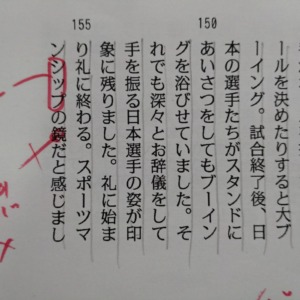 ールを決めたりすると大ブ
ーイング。試合終了後、日
本の選手たちがスタンドに
あいさつをしてもブーイン
グを浴びせていました。そ
れでも深々とお辞儀をして
手を振る日本選手の姿が印
象に残りました。礼に始ま
り礼に終わる。スポーツマ
ンシップの鏡だと感じまし
150
155